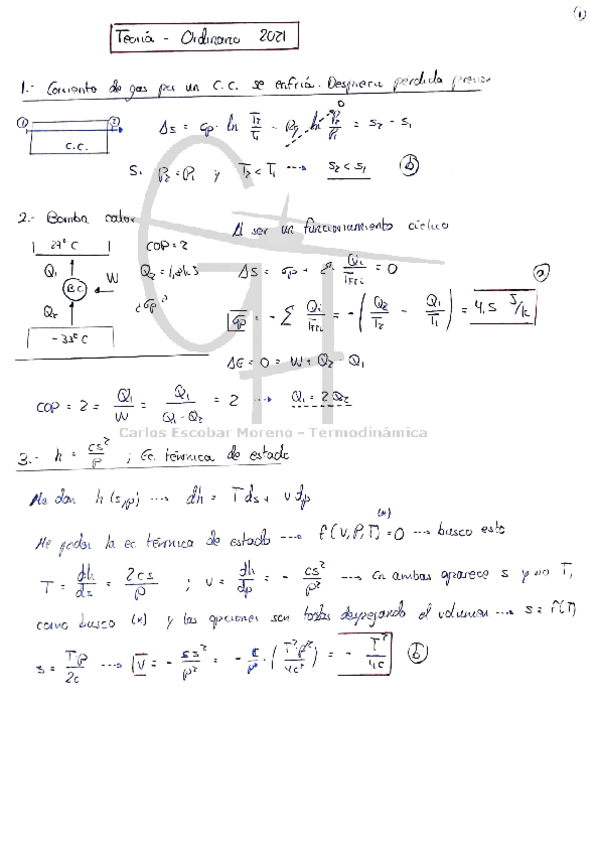 1
Teoría - Ordinario 2021
1.- Corriente de gas por un C.C. se enfría. Desprecia perdida presión
① ② Δs = cp · ln T2/T1 - Rg ln P2/P1 = s2 - s1
0
C.C.
Si P2 = P1 y T2 < T1 ---> s2 < s1 ⓑ
2.- Bomba calor
Al ser un funcionamiento cíclico
27°C COP = 2
Q1 Q2 = 1,8 kJ ΔS = σp + Σ Qi/TFCi = 0
BC W ¿σp?
ⓐ
Q2 σp = - Σ Qi/TFCi = - (Q2/T2 - Q1/T1) = 4,5 J/K
-33°C
ΔE = 0 = W + Q2 - Q1
COP = 2 = Q1/W = Q1/Q1-Q2 = 2 ---> Q1 = 2Q2
Carlos Escobar Moreno - Termodinámica
3.- h = cs²/P ; Ec. térmica de estado
Me dan h(s,p) ---> dh = Tds + vdp
Me piden la ec. térmica de estado ---> f(v,P,T) = 0 ---> busco esto
(*)
T = dh/ds = 2cs/P ; v = dh/dp = - cs²/P² ---> En ambas aparece s y no T,
como busco (*) y las opciones son todas despejando el volumen ---> s = f(T)
s = TP/2c ---> v = - cs²/P² = - c/P² · (T²P²/4c²) = - T²/4c ⓑ